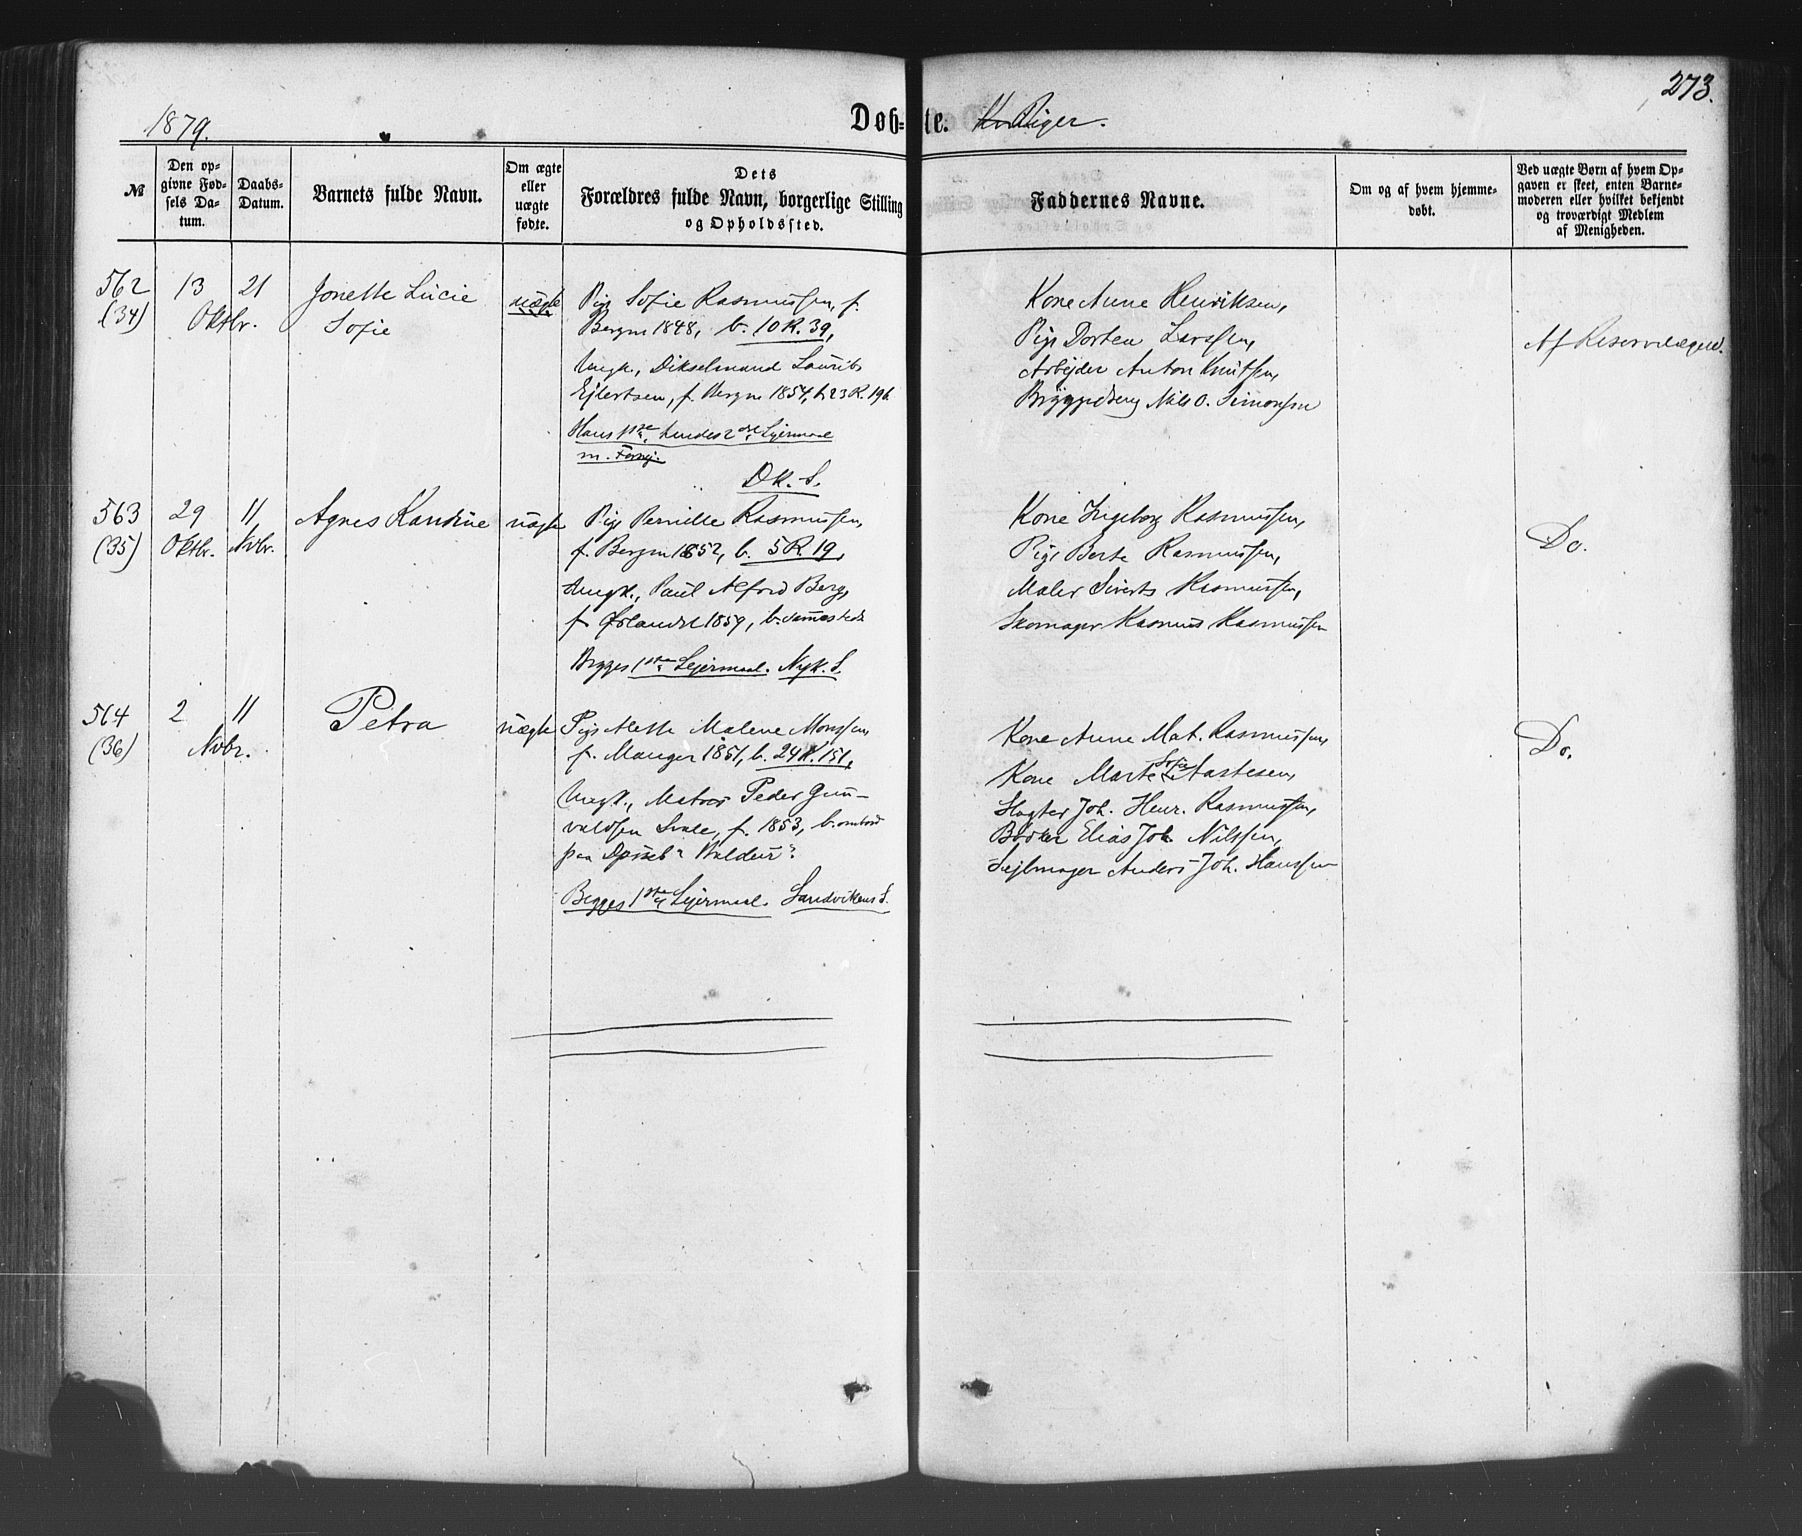 273.
1879.
Døb=te. Piger.
№
Den op-
givne Fød-
sels Da-
tum.
Daabs-
Datum.
Barnets fulde Navn.
Om ægte
eller
uægte
fødte.
Dets
Forældres fulde Navn, borgerlige Stilling
og Opholdssted.
Faddernes Navne.
Om og af hvem hjemme-
døbt.
Ved uægte Børn af hvem Op-
gaven er skeet, enten Barne-
moderen eller hvilket bekjendt
og troværdigt Medlem
af Menigheden.
562
(34)
13 21
Oktbr.
Jonette Lucie
Sofie
uægte
Pige Sofie Rasmussen, f.
Bergen 1848, b. 10 R. 39,
Ungk., Dikselmand Laurits
Ejlertsen, f. Bergen 1854, b. 23 R. 196
Hans 1ste, hendes 2det Lejermaal
m. Forsk.
DK. S.
Kone Anne Henriksen,
Pige Dorten Larssen,
Arbejder Anton Knutsen,
Nils O. Simonsen
Af Reservelægen.
563
(35)
29
Oktbr.
11
Nvbr.
Agnes Kandine
uægte
Pige Pernille Rasmussen,
f. Bergen 1852, b. 5 R. 19,
Ungk., Paul Alford Berg,
f. Ørlandet 1859, b. sammesteds
Begges 1ste Lejermaal. Nyk. S.
Kone Ingeborg Rasmussen,
Pige Berte Rasmussen,
Maler Siverts Rasmussen,
Skomager Rasmus Rasmussen
Do.
564
(36)
2 11
Nvbr.
Petra
uægte
Pige Mette Malene Monssen
f. Manger 1851, b. 24 R. 151,
Ungk., Matros Peder Gun-
valdsen Svale, f. 1853, b. ombord
paa Dpsket "Baldur".
Begges 1ste Lejermaal. Sandvikens S.
Kone Anne Mat. Rasmussen,
Kone Marte Sofie Aastesen,
Slagter Joh. Henr. Rasmussen,
Bødker Elias Joh. Nilssen,
Sejlmager Anders Joh. Hanssen
Do.